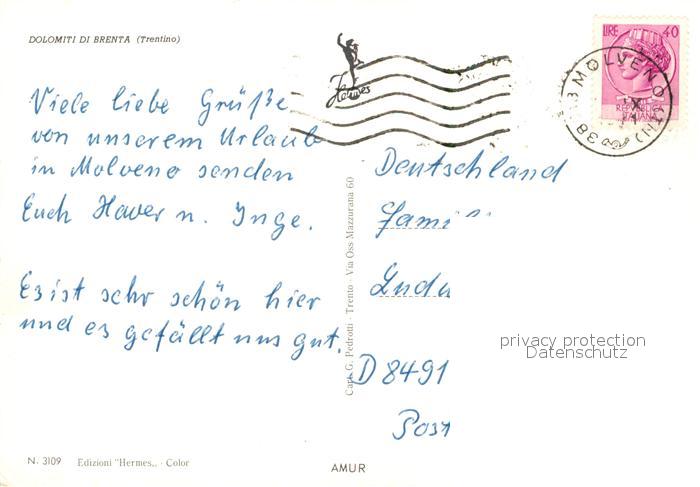 DOLOMITI DI BRENTA (Trentino)
Viele liebe Grüße
von unserem Urlaub
in Molveno senden
Euch Haver u. Inge.
Es ist sehr schön hier
und es gefällt uns gut.
N. 3109 Edizioni "Hermes„ - Color
Cart. G. Pedrotti - Trento - Via Oss Mazzurana 60
AMUR
Hermes
LIRE 40
REPUBBLICA
ITALIANA
MOLVENO
(TN)
38
Deutschland
Fami
Ludw
D 8491
Post
privacy protection
Datenschutz